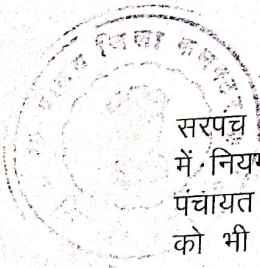 जिला
सरपंच
में निय
पंचायत
को भी